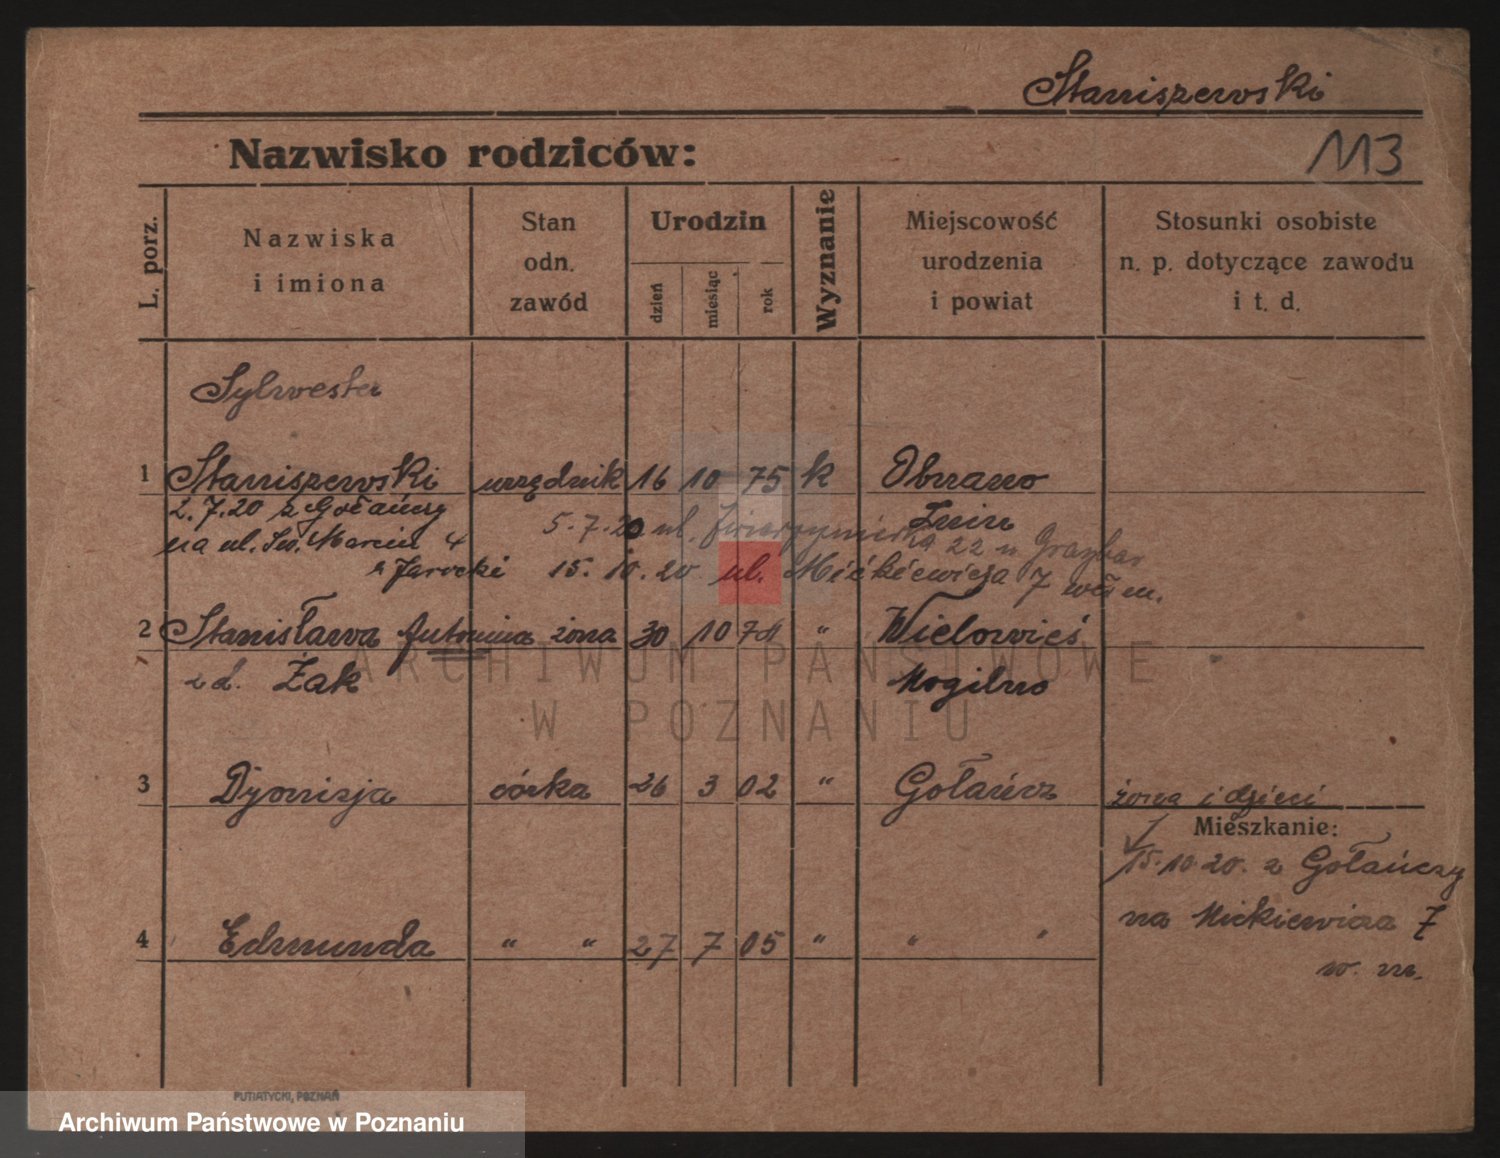 Staniszewski
Nazwisko rodziców:
113
L. porz.
Nazwiska
i imiona
Stan
odn.
zawód
Urodzin
dzień
miesiąc
rok
Wyznanie
Miejscowość
urodzenia
i powiat
Stosunki osobiste
n. p. dotyczące zawodu
i t. d.
Sylwester
1 Staniszewski urzędnik 16 10 75 k
2.7.20 z Gołańczy
na ul. Św. Marcin 4
5.7.20 ul. 22 u
Żnin
Jarocki 15.10.20 ul. Mickiewicza 7 włm.
2 Stanisława Antonina żona 30 10 74 " Wielowieś
z d. Żak Mogilno
3 Dyonizja córka 26 3 02 " Gołańcz żona i dzieci
Mieszkanie:
15.10.20. z Gołańczy
na Mickiewicza 7
w. m.
4 Edmunda " " 27 7 05 " " "
ARCHIWUM PAŃSTWOWE
W POZNANIU
PUTIATYCKI, POZNAŃ
Archiwum Państwowe w Poznaniu